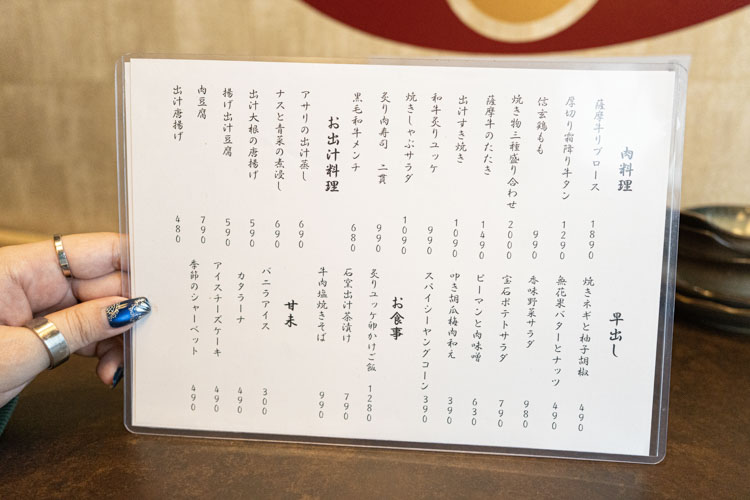 肉料理
薩摩牛リブロース 1890
厚切り霜降り牛タン 1290
信玄鶏もも 990
焼き物三種盛り合わせ 2000
薩摩牛のたたき 1490
出汁すき焼き 1090
和牛炙りユッケ 990
焼きしゃぶサラダ 1090
炙り肉寿司 二貫 990
黒毛和牛メンチ 680
お出汁料理
アサリの出汁蒸し 690
ナスと青菜の煮浸し 690
出汁大根の唐揚げ 590
揚げ出汁豆腐 590
肉豆腐 790
出汁唐揚げ 480
早出し
焼きネギと柚子胡椒 490
無花果バターとナッツ 490
香味野菜サラダ 980
宝石ポテトサラダ 790
ピーマンと肉味噌 630
叩き胡瓜梅肉和え 390
スパイシーヤングコーン 390
お食事
炙りユッケ卵かけご飯 1280
石窯出汁茶漬け 790
牛肉塩焼きそば 990
甘未
バニラアイス 300
カタラーナ 490
アイスチーズケーキ 490
季節のシャーベット 490